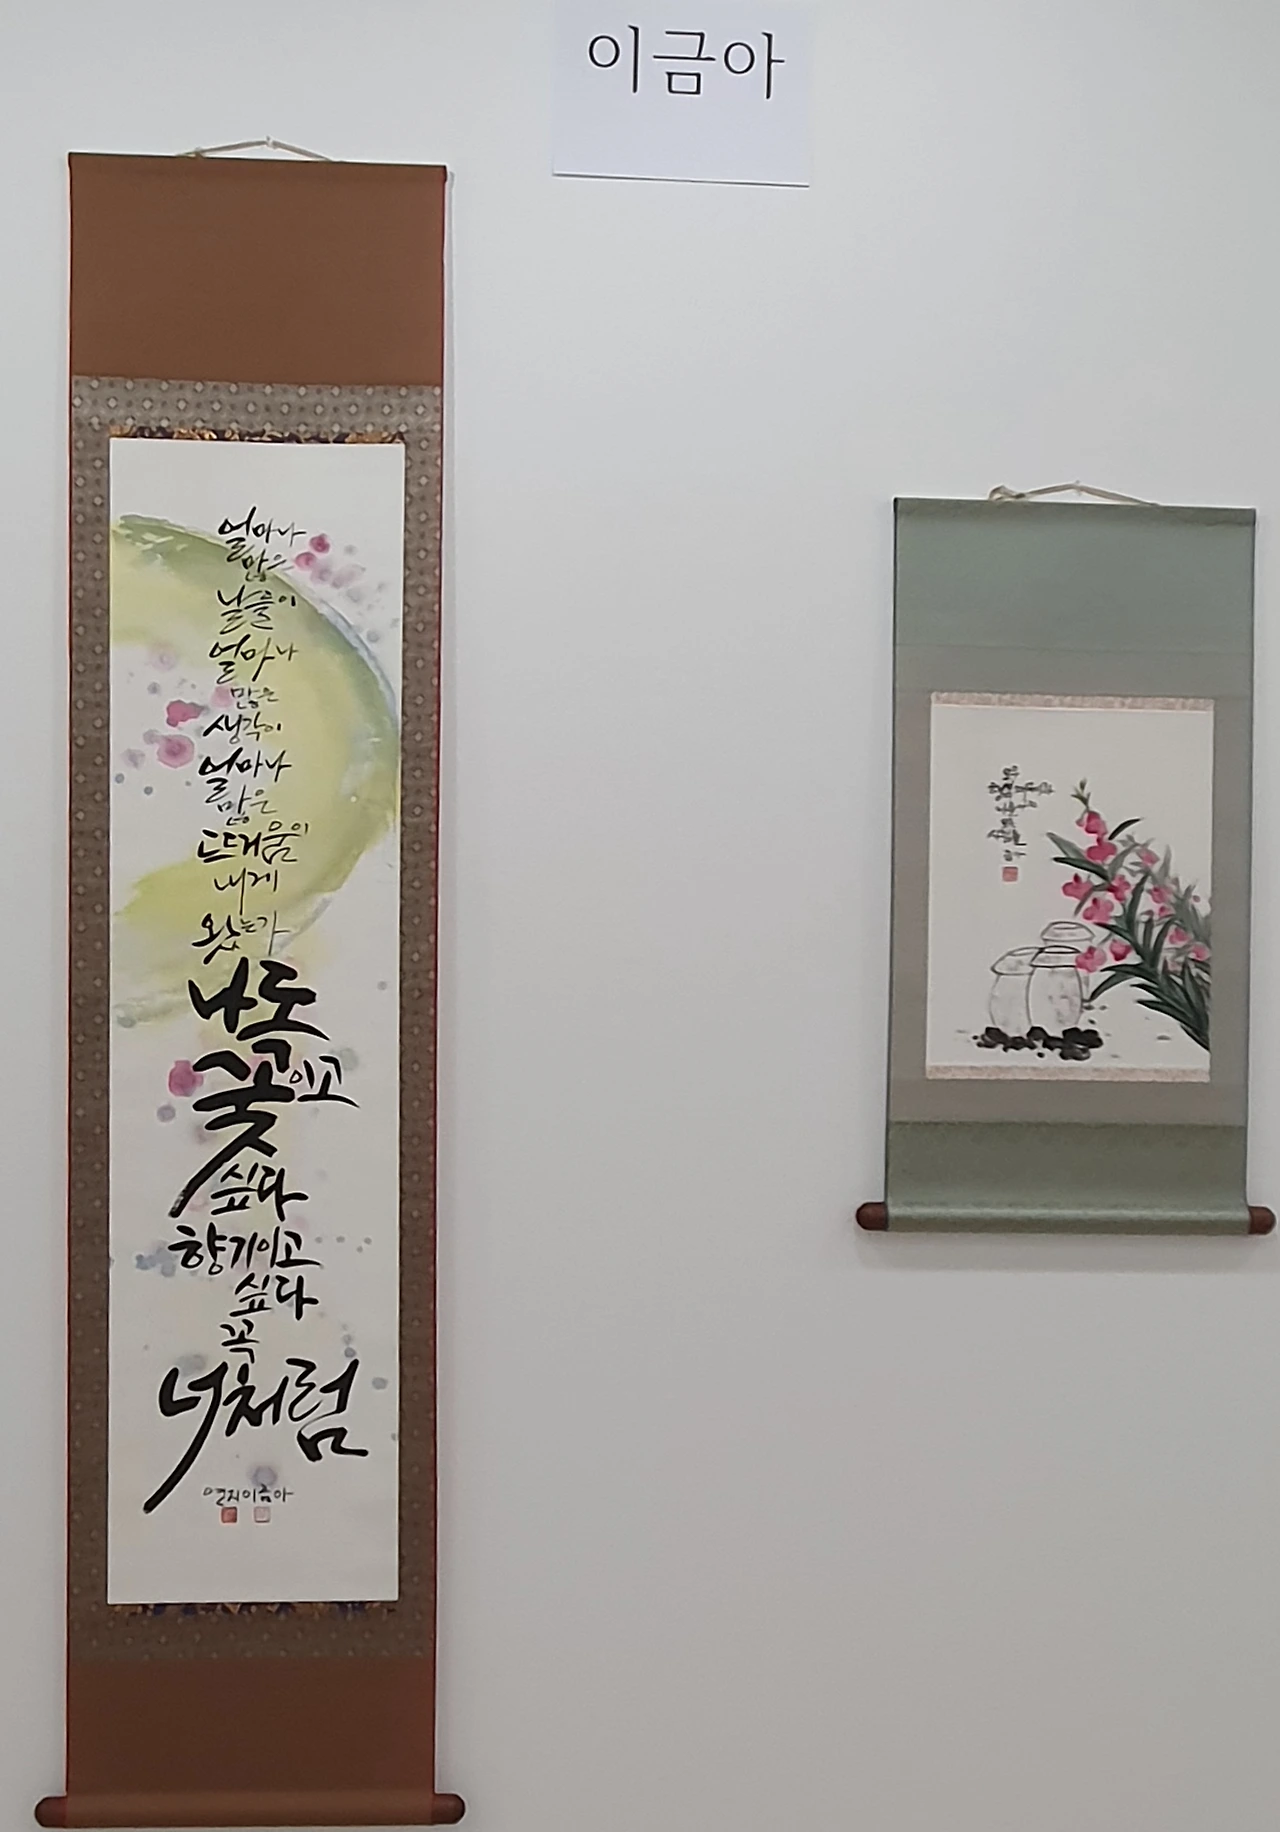 이금아
얼마나
많은
날들이
얼마나
많은
생각이
얼마나
많은
뜨거움이
내게
왔는가
나도
꽃이고
싶다
향기이고
싶다
꼭
너처럼
이금아